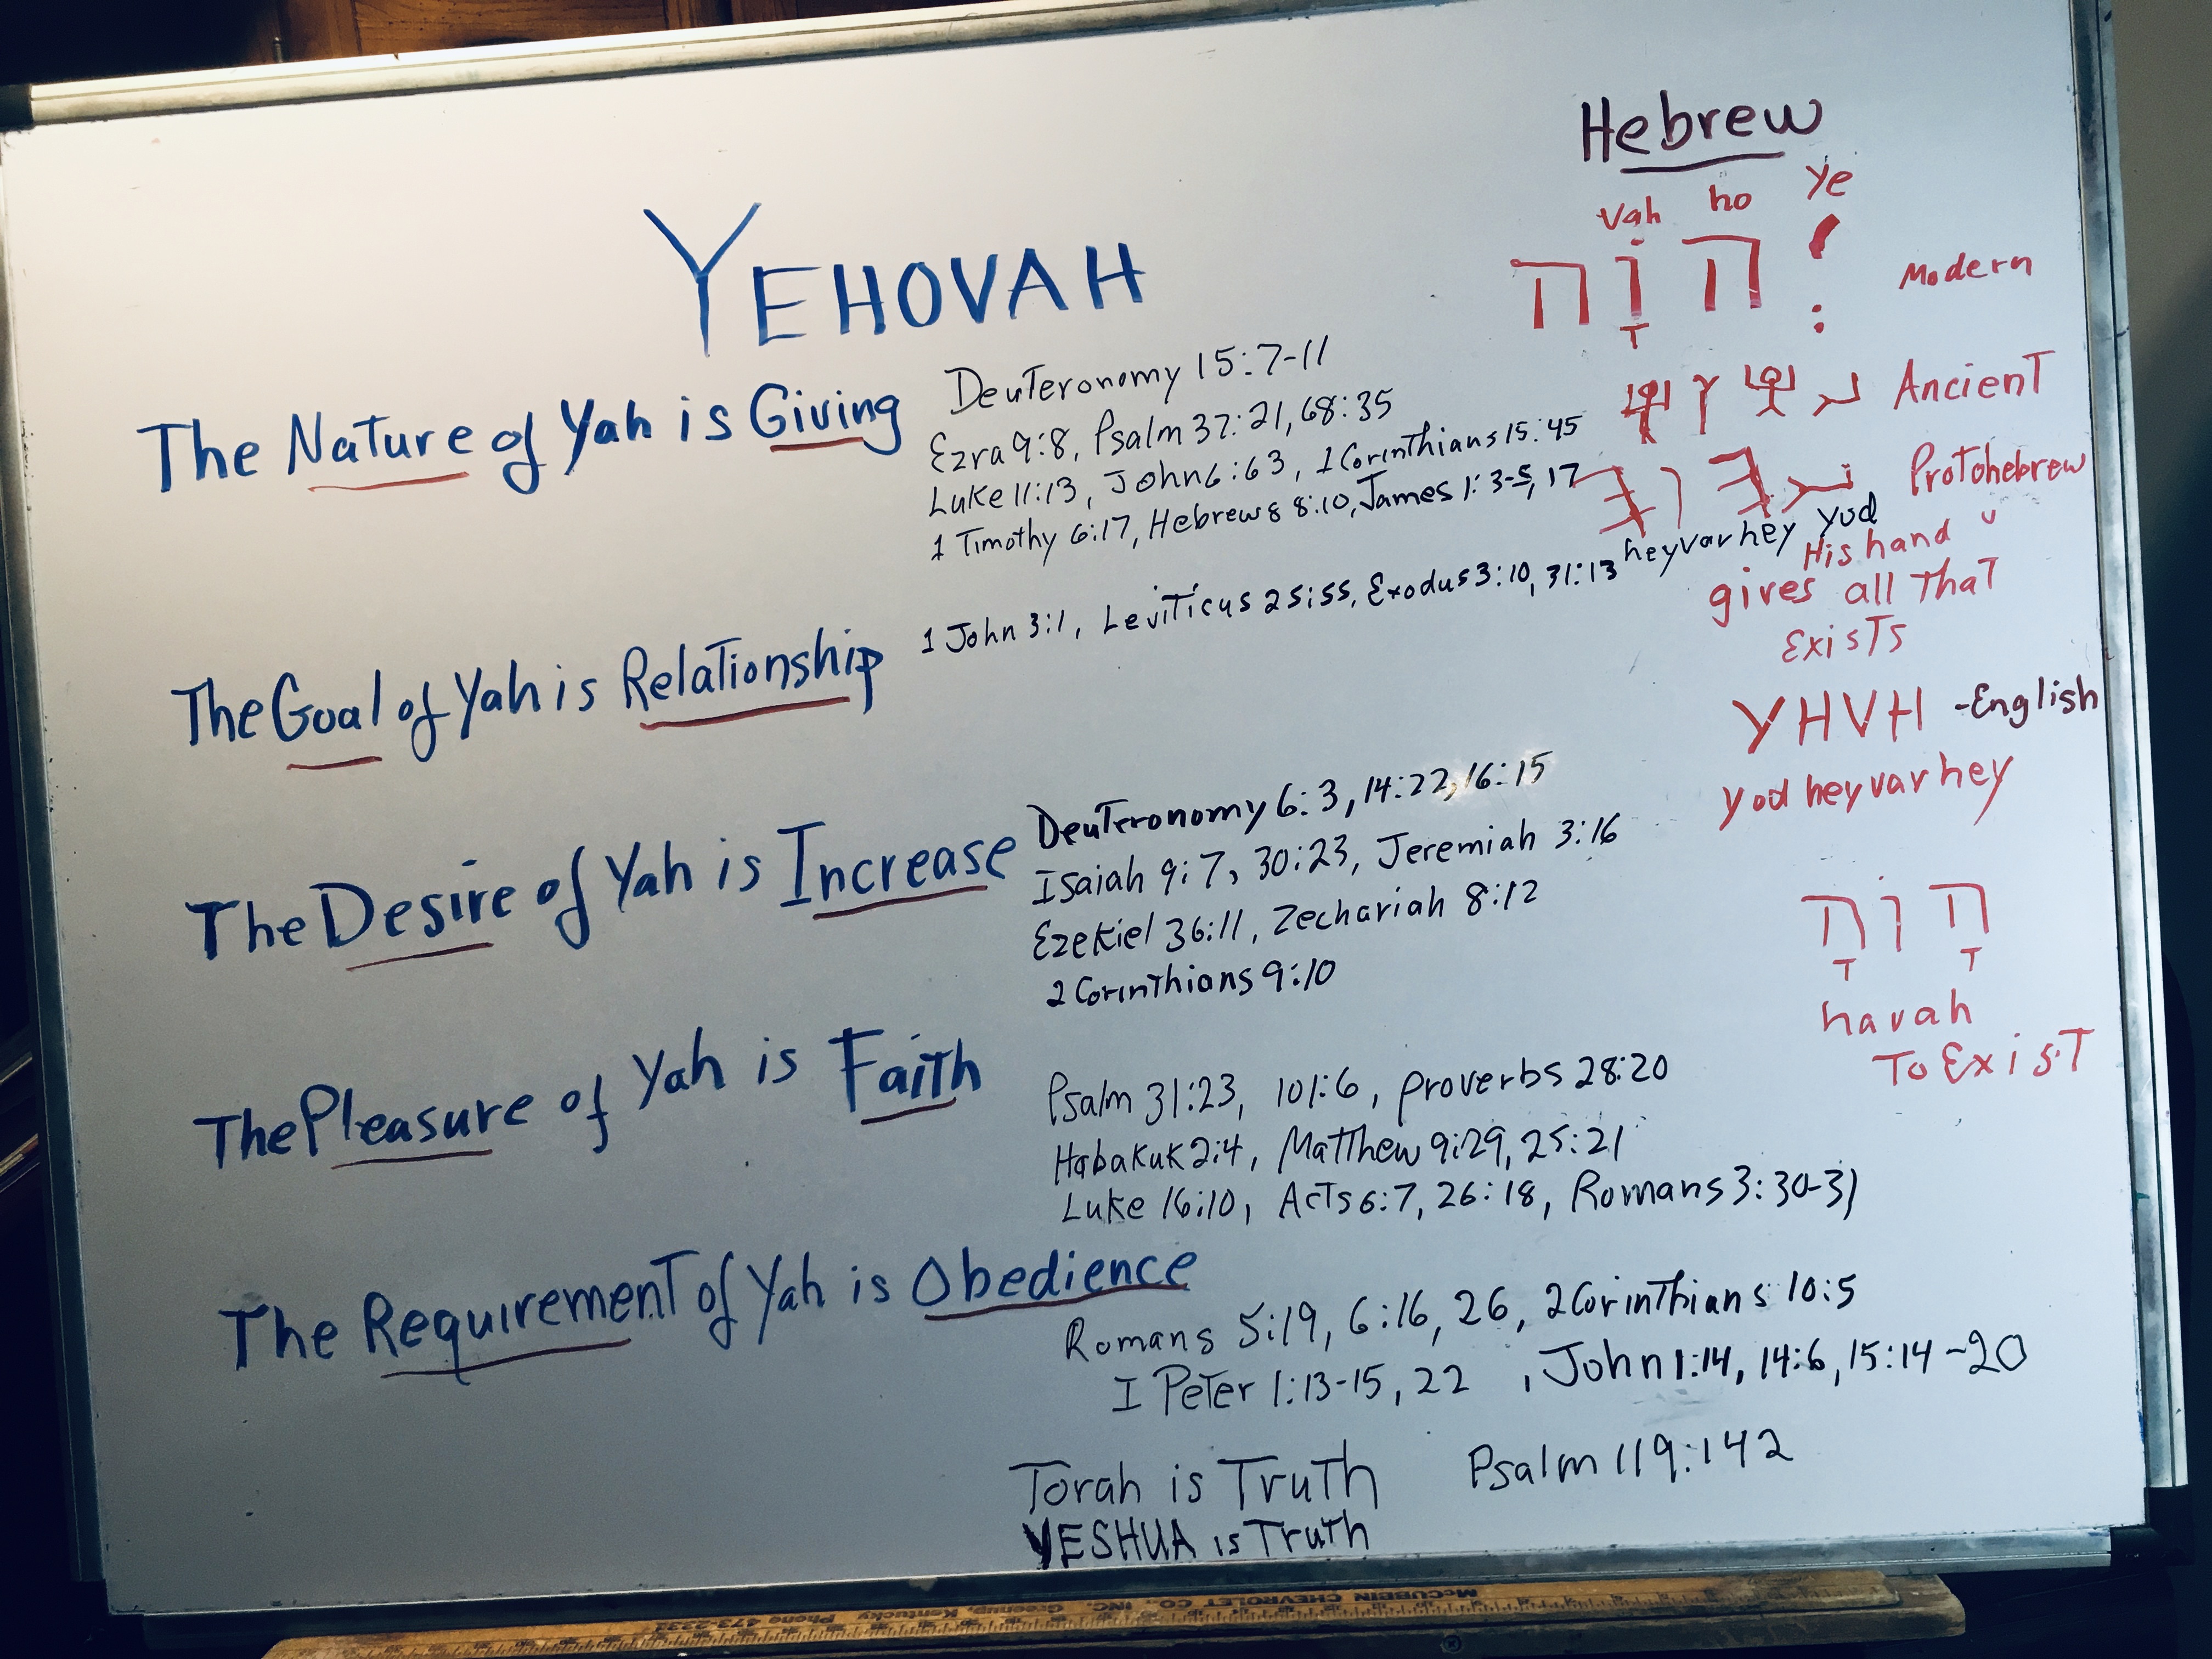 YEHOVAH
The Nature of Yah is Giving
Deuteronomy 15:7-11
Ezra 9:8, Psalm 37:21, 68:35
Luke 11:13, John 6:63, 1 Corinthians 15:45
1 Timothy 6:17, Hebrews 8:10, James 1:3-5, 17
The Goal of Yah is Relationship
1 John 3:1, Leviticus 25:55, Exodus 3:10, 31:13
The Desire of Yah is Increase
Deuteronomy 6:3, 14:22, 16:15
Isaiah 9:7, 30:23, Jeremiah 3:16
Ezekiel 36:11, Zechariah 8:12
2 Corinthians 9:10
The Pleasure of Yah is Faith
Psalm 31:23, 101:6, proverbs 28:20
Habakuk 2:4, Matthew 9:29, 25:21
Luke 16:10, Acts 6:7, 26:18, Romans 3:30-31
The Requirement of Yah is Obedience
Romans 5:19, 6:16, 26, 2 Corinthians 10:5
I Peter 1:13-15, 22, John 1:14, 14:6, 15:14-20
Torah is Truth Psalm 119:142
YESHUA is Truth
Hebrew
Vah ho Ye
יְהוָֹה Modern
Ancient
Protohebrew
hey var hey yud
His hand
gives all that
Exists
YHVH -English
yod hey var hey
הָוֹה
havah
To Exist
McCUBBIN CHEVROLET CO., INC. Greenup, Kentucky Phone 473-2233